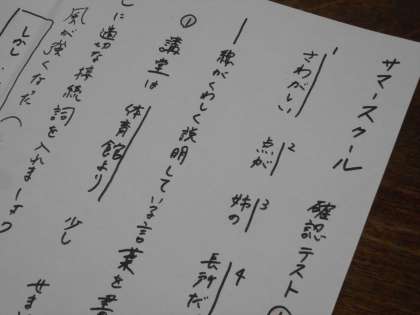 サマースクール 確認テスト①
1 さわがしい 2 点が 3 姉の 4 長所だ
線がくわしく説明している言葉を書
① 講堂は 体育館より 少し せま
に適切な接続詞を入れましょう
風が強くなった
しかし